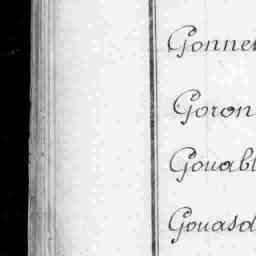 Gonne
Goron
Gouabl
Gouasd